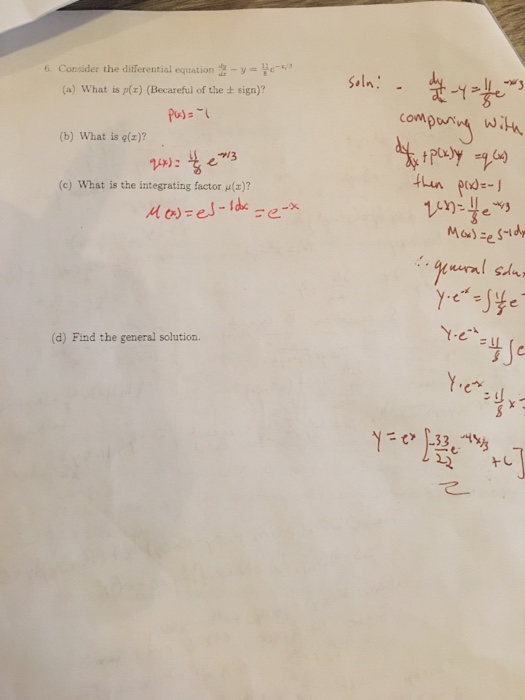 6. Consider the differential equation dy/dx − y = 11/8 e^(−x/3)
(a) What is p(x) (Becareful of the ± sign)?
p(x) = -1
(b) What is q(x)?
q(x) = 11/8 e^(-x/3)
(c) What is the integrating factor μ(x)?
M(x) = e^(∫-1dx) = e^(-x)
(d) Find the general solution.
soln: - dy/dx - y = 11/8 e^(-x/3)
comparing with
dy/dx + p(x)y = q(x)
then p(x) = -1
q(x) = 11/8 e^(-x/3)
M(x) = e^(∫-1d
∴ general
y·e^(-x) = ∫ 11/8 e
y·e^(-x) = 11/8 ∫ e
y·e^(-x) = 11/8 ×
y = e^x [-33/22 e^(-4x/3) + c]